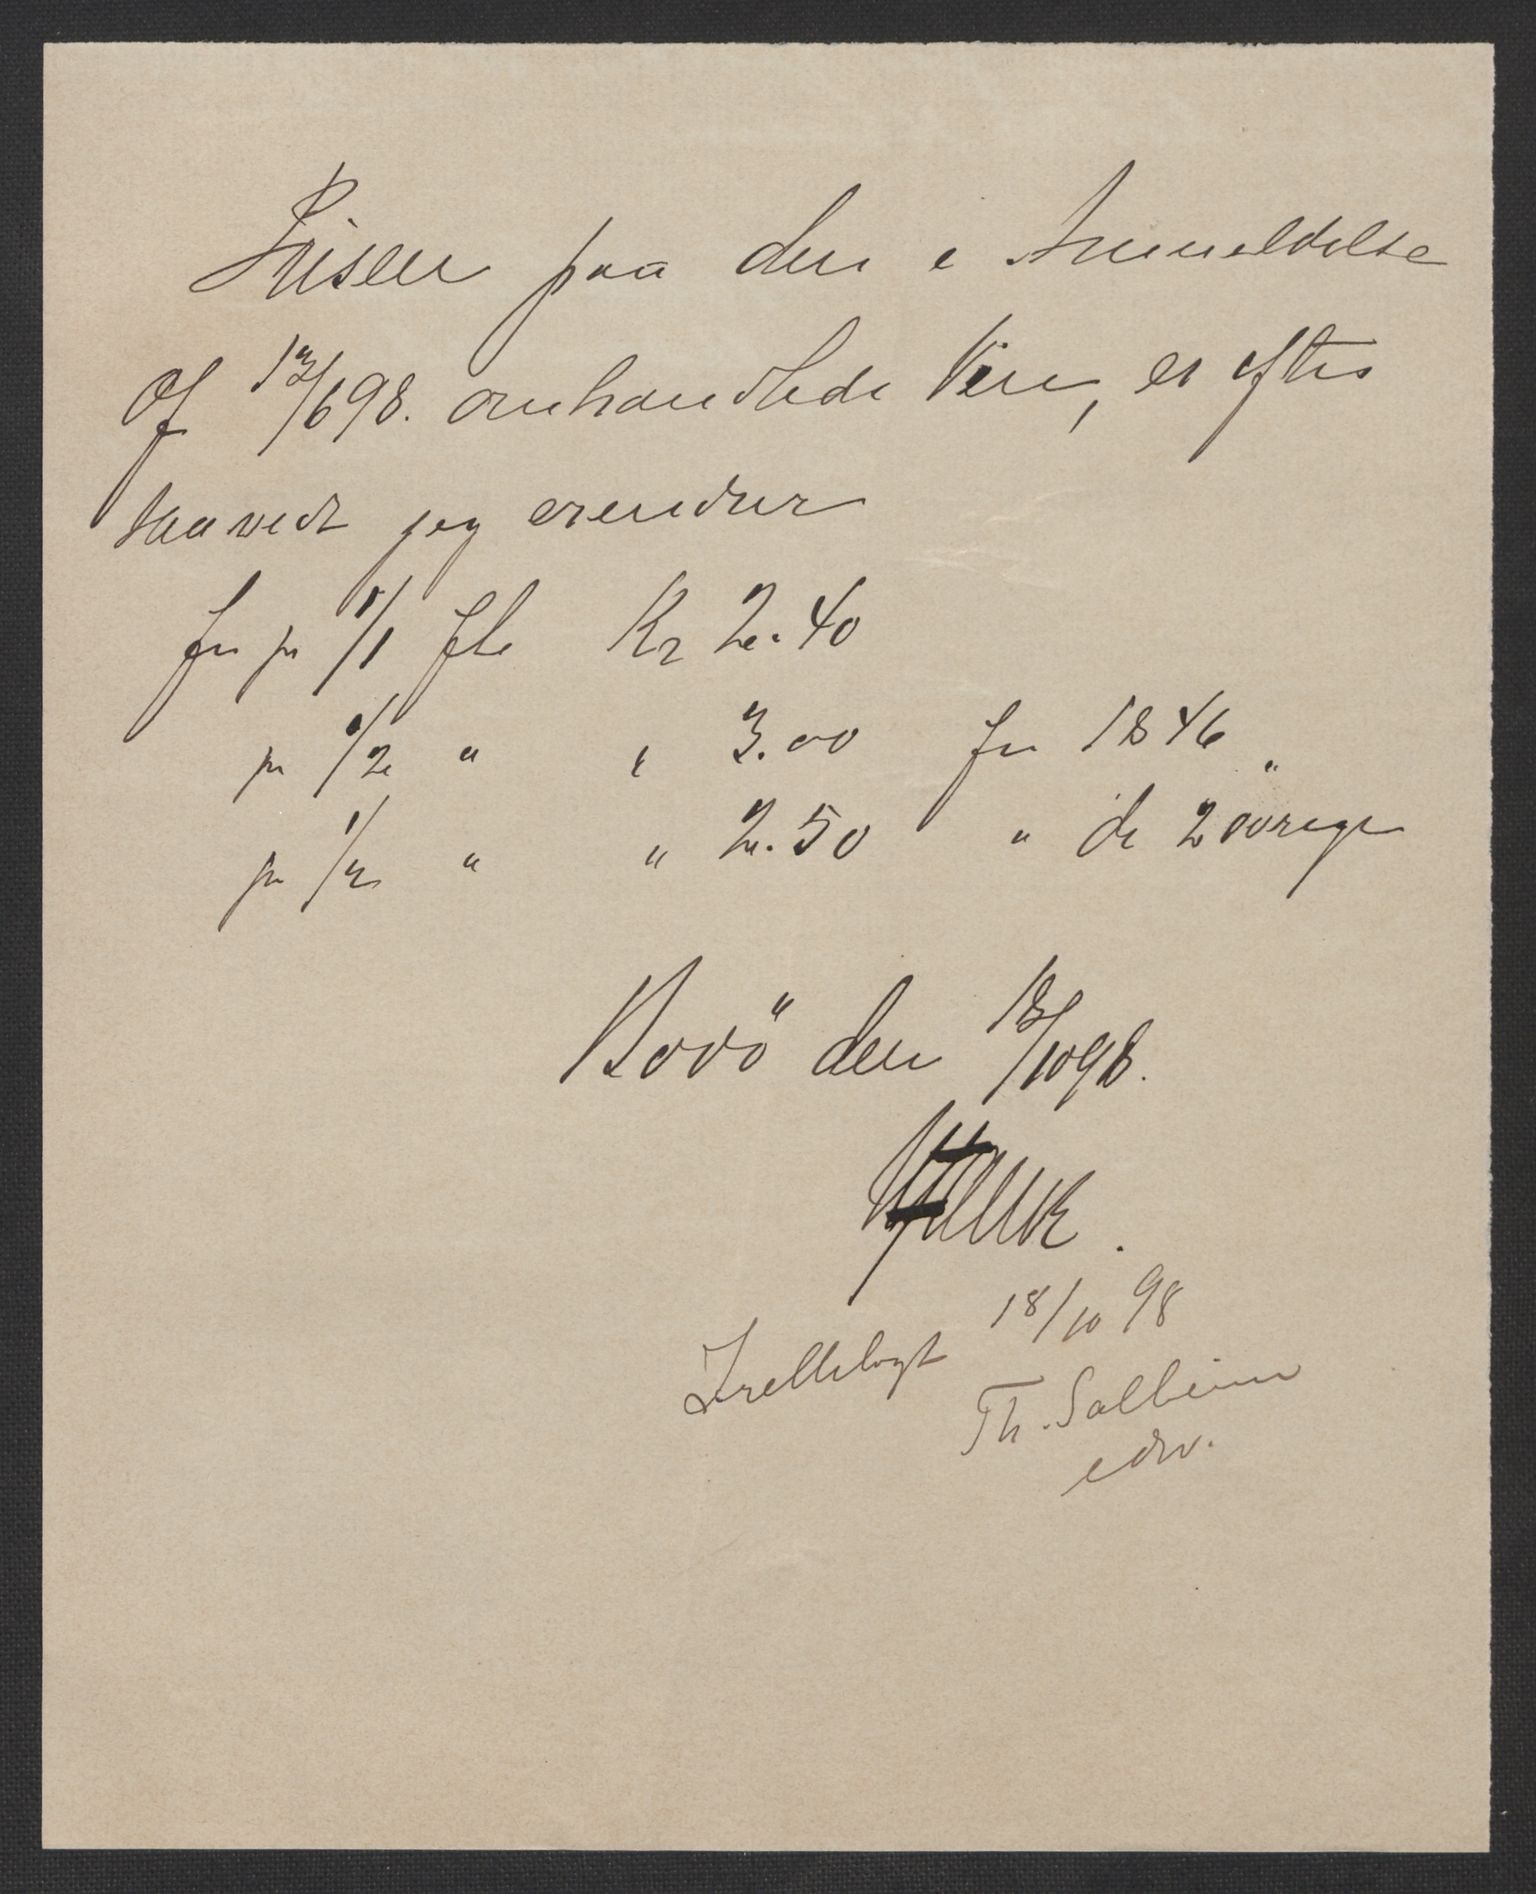 Prisen paa den i Anmeldelse
af 13/6 98. omhandlede Vin, er efter
saavidt jeg erindrer
for pr 1/1 fle Kr 2.40
pr 1/2 " " 3.00 for 1846
pr 1/2 " " 2.50 " " de 2 øvrige
Bodö den 18/10 98.
Fremlagt 18/10 98
Th. Solheim
edsv.